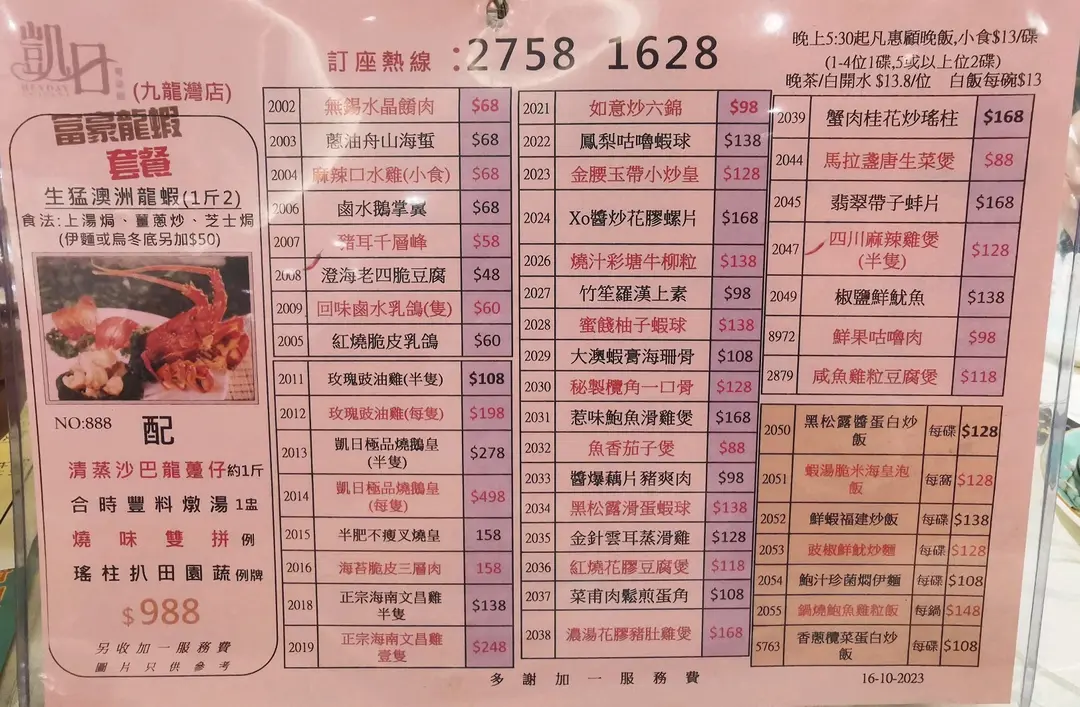 凱日
HEYDAY
(九龍灣店)
訂座熱線:2758 1628
晚上5:30起凡惠顧晚飯,小食$13/碟
(1-4位1碟,5或以上位2碟)
晚茶/白開水 $13.8/位 白飯每碗$13
富豪龍蝦
套餐
生猛澳洲龍蝦(1斤2)
食法:上湯焗、薑蔥炒、芝士焗
(伊麵或烏冬底另加$50)
NO:888
配
清蒸沙巴龍躉仔約1斤
合時豐料燉湯1盅
燒味雙拼例
瑤柱扒田園蔬例牌
$988
另收加一服務費
圖片只供參考
2002 無錫水晶餚肉 $68
2003 蔥油舟山海蜇 $68
2004 麻辣口水雞(小食) $68
2006 鹵水鵝掌翼 $68
2007 豬耳千層峰 $58
2008 澄海老四脆豆腐 $48
2009 回味鹵水乳鴿(隻) $60
2005 紅燒脆皮乳鴿 $60
2011 玫瑰豉油雞(半隻) $108
2012 玫瑰豉油雞(每隻) $198
2013 凱日極品燒鵝皇
(半隻) $278
2014 凱日極品燒鵝皇
(每隻) $498
2015 半肥不瘦叉燒皇 158
2016 海苔脆皮三層肉 158
2018 正宗海南文昌雞
半隻 $138
2019 正宗海南文昌雞
壹隻 $248
2021 如意炒六錦 $98
2022 鳳梨咕嚕蝦球 $138
2023 金腰玉帶小炒皇 $128
2024 Xo醬炒花膠螺片 $168
2026 燒汁彩塘牛柳粒 $138
2027 竹笙羅漢上素 $98
2028 蜜餞柚子蝦球 $138
2029 大澳蝦膏海珊骨 $108
2030 秘製欖角一口骨 $128
2031 惹味鮑魚滑雞煲 $168
2032 魚香茄子煲 $88
2033 醬爆藕片豬爽肉 $98
2034 黑松露滑蛋蝦球 $138
2035 金針雲耳蒸滑雞 $128
2036 紅燒花膠豆腐煲 $118
2037 菜甫肉鬆煎蛋角 $108
2038 濃湯花膠豬肚雞煲 $168
2039 蟹肉桂花炒瑤柱 $168
2044 馬拉盞唐生菜煲 $88
2045 翡翠帶子蚌片 $168
2047 四川麻辣雞煲
(半隻) $128
2049 椒鹽鮮魷魚 $138
8972 鮮果咕嚕肉 $98
2879 咸魚雞粒豆腐煲 $118
2050 黑松露醬蛋白炒
飯 每碟 $128
2051 蝦湯脆米海皇泡
飯 每窩 $128
2052 鮮蝦福建炒飯 每碟 $138
2053 豉椒鮮魷炒麵 每碟 $128
2054 鮑汁珍菌燜伊麵 每碟 $108
2055 鍋燒鮑魚雞粒飯 每鍋 $148
5763 香蔥欖菜蛋白炒
飯 每碟 $108
多謝加一服務費
16-10-2023